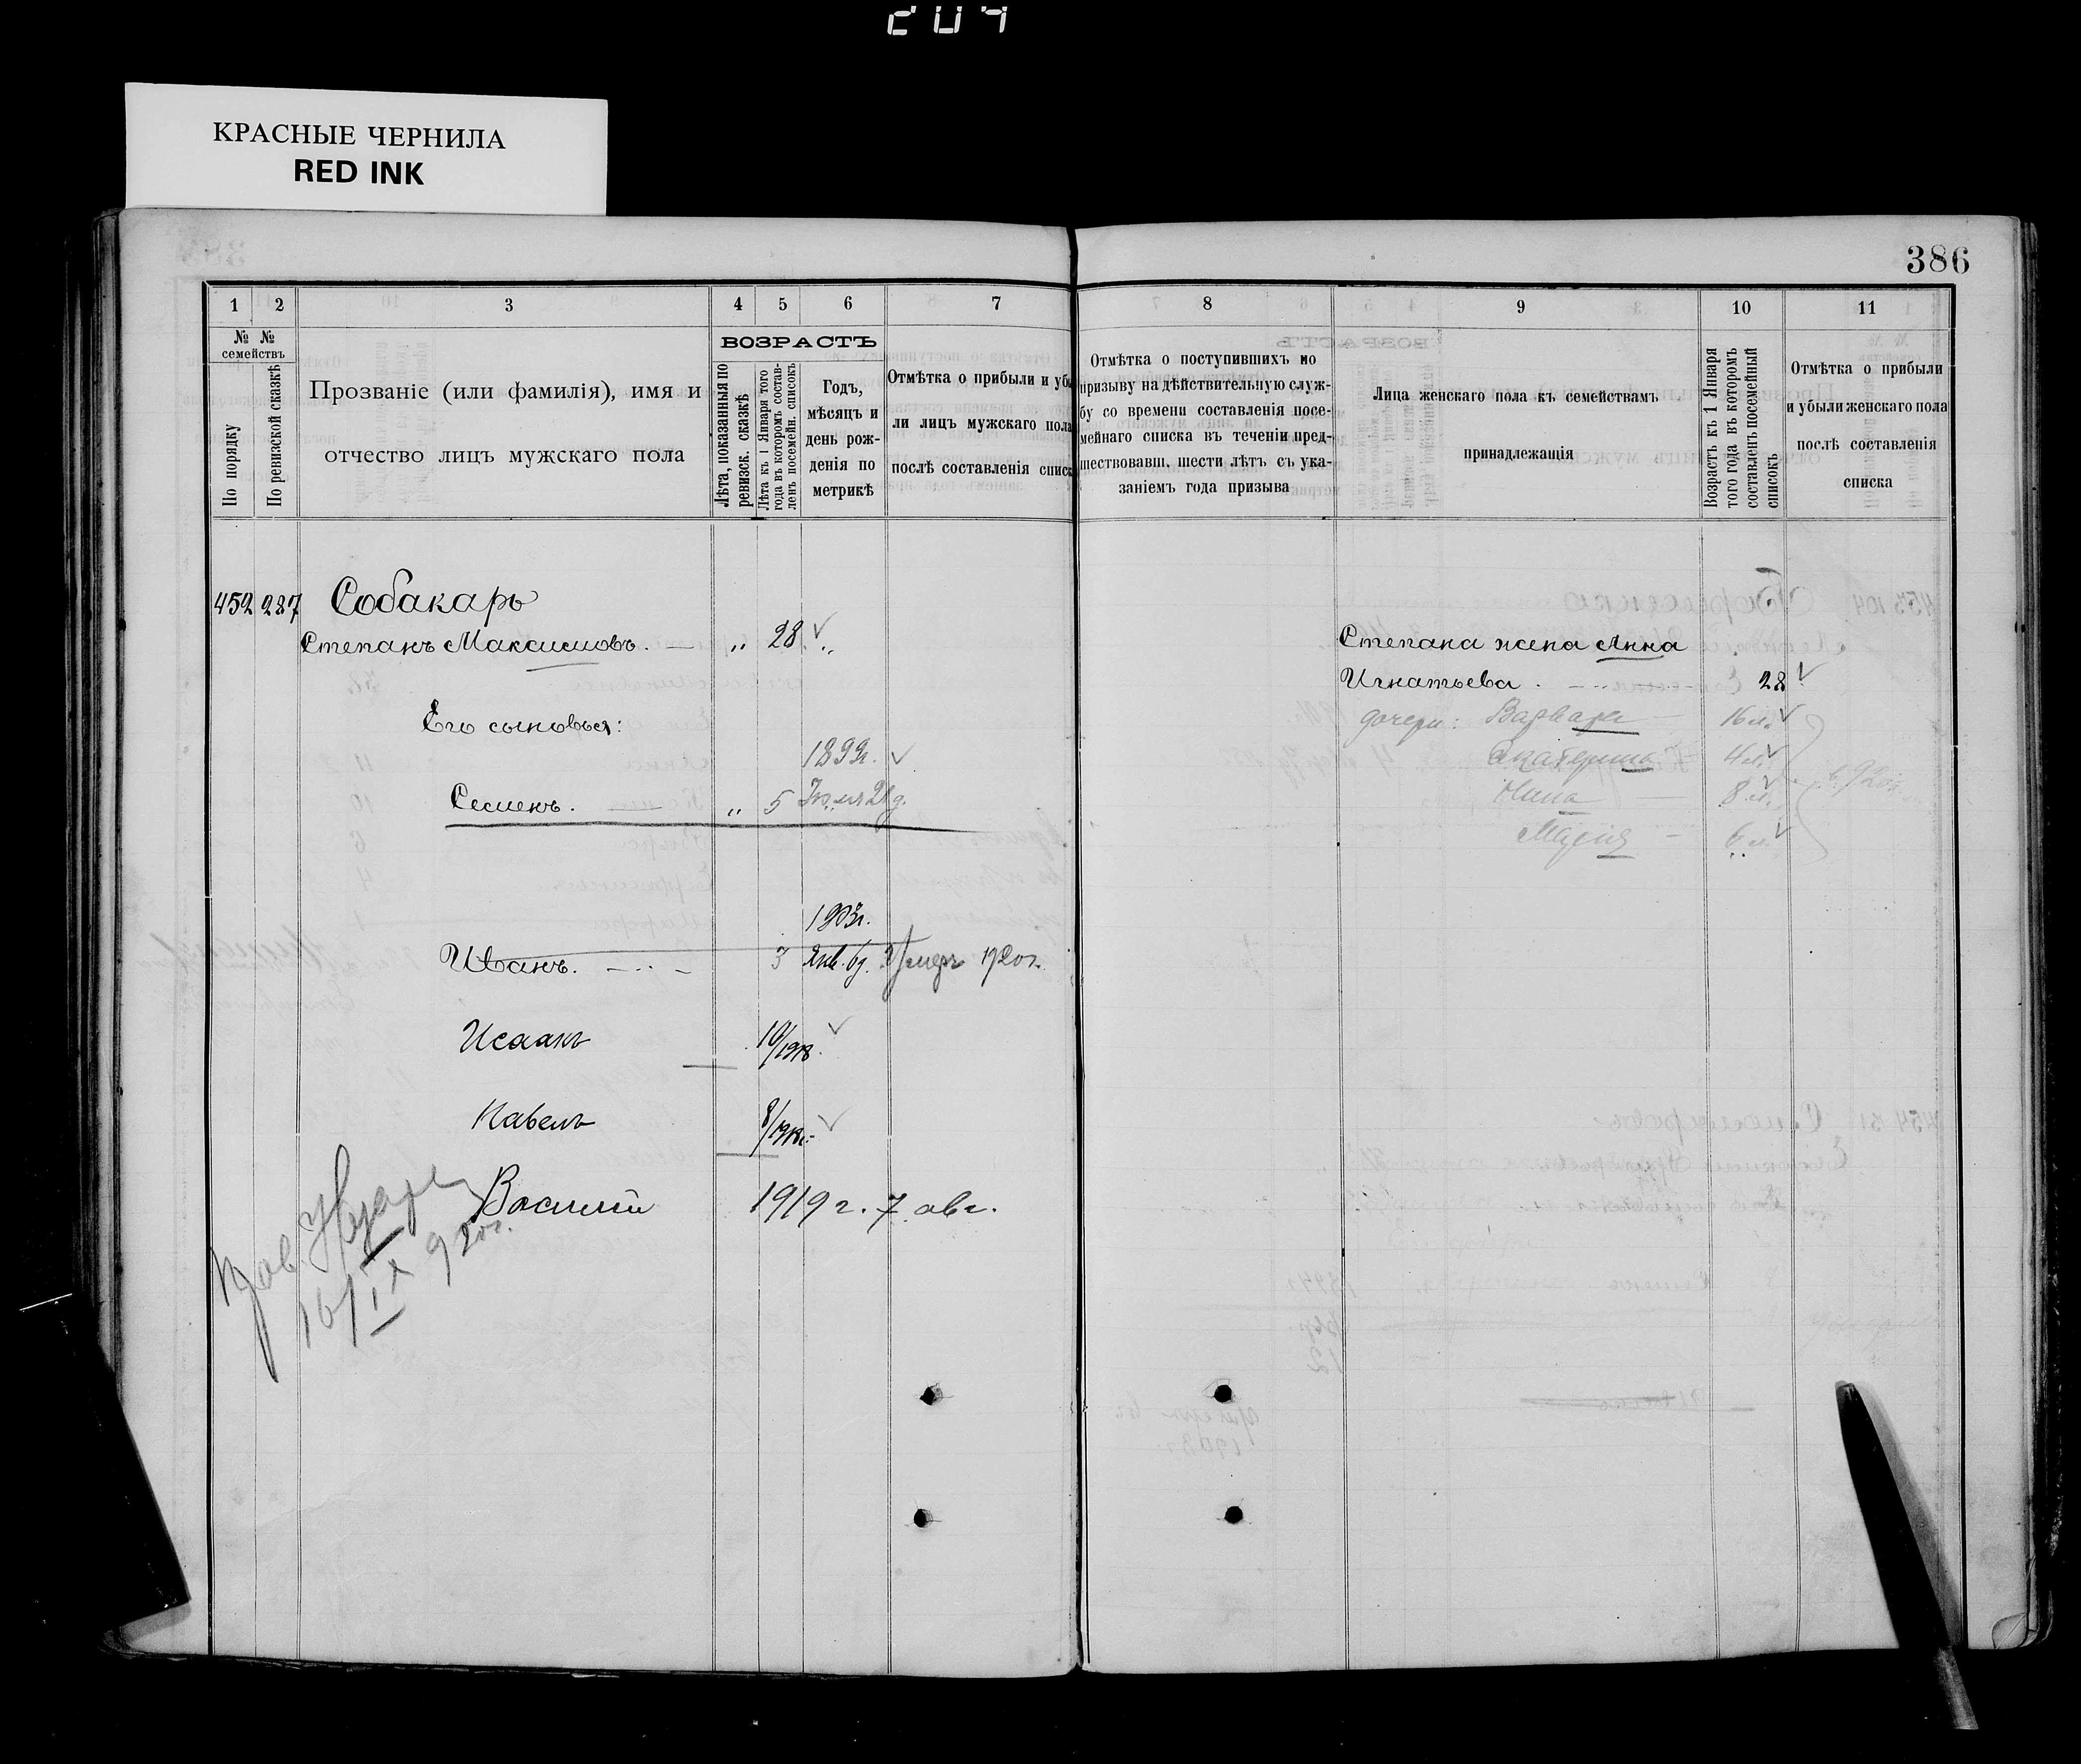 204
КРАСНЫЕ ЧЕРНИЛА
RED INK
386
1 2 3 4 5 6 7
№ № семействъ
По порядку
По ревизской сказкѣ
Прозваніе (или фамилія), имя и
отчество лицъ мужскаго пола
ВОЗРАСТЪ
Лѣта, показанныя по
ревизск. сказкѣ
Лѣта къ 1 Января того
года въ которомъ состав-
ленъ посемейн. списокъ
Годъ,
мѣсяцъ и
день рож-
денія по
метрикѣ
Отмѣтка о прибыли и убы
ли лицъ мужскаго пола
послѣ составленія списк
8 9 10 11
Отмѣтка о поступившихъ по
призыву на дѣйствительную служ-
бу со времени составленія посе-
мейнаго списка въ теченіи пред-
шествовавш. шести лѣтъ съ ука-
заніемъ года призыва
Лица женскаго пола къ семействамъ
принадлежащія
Возрастъ къ 1 Января
того года въ которомъ
составленъ посемейный
списокъ
Отмѣтка о прибыли
и убыли женскаго пола
послѣ составленія
списка
452 287 Собакарь
Степанъ Максимовъ. — „ 28 „
Его сыновья:
1899г.
Семенъ. — „ 5 21 д.
1903г.
Иванъ. 3 Янв. 6 д. Умеръ 1920г.
Исаакъ 10/1918
Павелъ 8/1918г.
Василій 1919 г. 7 авг.
16/IX 920г.
Степана жена Анна
Игнатьева. 28
дочери: Варвара — 16 л.
Екатерина 4 л.
Нина — 8 л. в 920г.
Марія — 6 л.